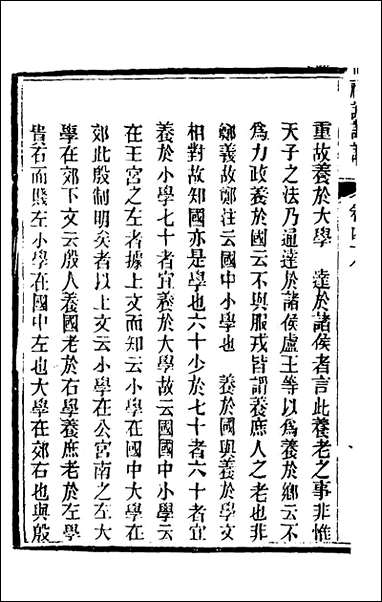 重故養於大學　達於諸侯者言此養老之事非惟
天子之法乃通達於諸侯盧王等以為養於鄉云不
為力政養於國云不與服戎皆謂養庶人之老也非
鄭義故鄭注云國中小學也　養於國與養於學文
相對故知國亦是學也六十少於七十者六十者宜
養於小學七十者宜養於大學故云國國中小學云
在王宮之左者據上文而知云小學在國中大學在
郊此殷制明矣者以上文云小學在公宮南之左大
學在郊下文云殷人養國老於右學養庶老於左學
貴右而賤左小學在國中左也大學在郊右也與殷